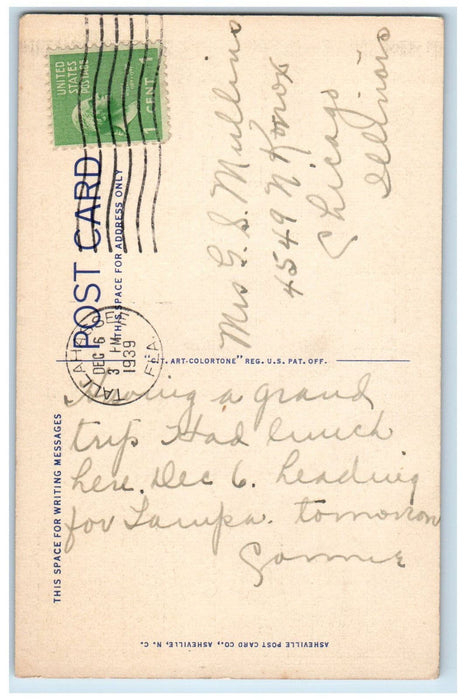 UNITED
STATES
POSTAGE
1 CENT 1
POST CARD
THIS SPACE FOR ADDRESS ONLY
TALLAHASSEE
DEC 6
3 PM
1939
FLA.
Mrs G. S. Mullins
4549 N. Knox
Chicago
Illinois
ART-COLORTONE" REG. U.S. PAT. OFF.
THIS SPACE FOR WRITING MESSAGES
Having a grand
trip Had lunch
here. Dec 6. heading
for Tampa. tomorrow
ASHEVILLE POST CARD CO., ASHEVILLE, N. C.